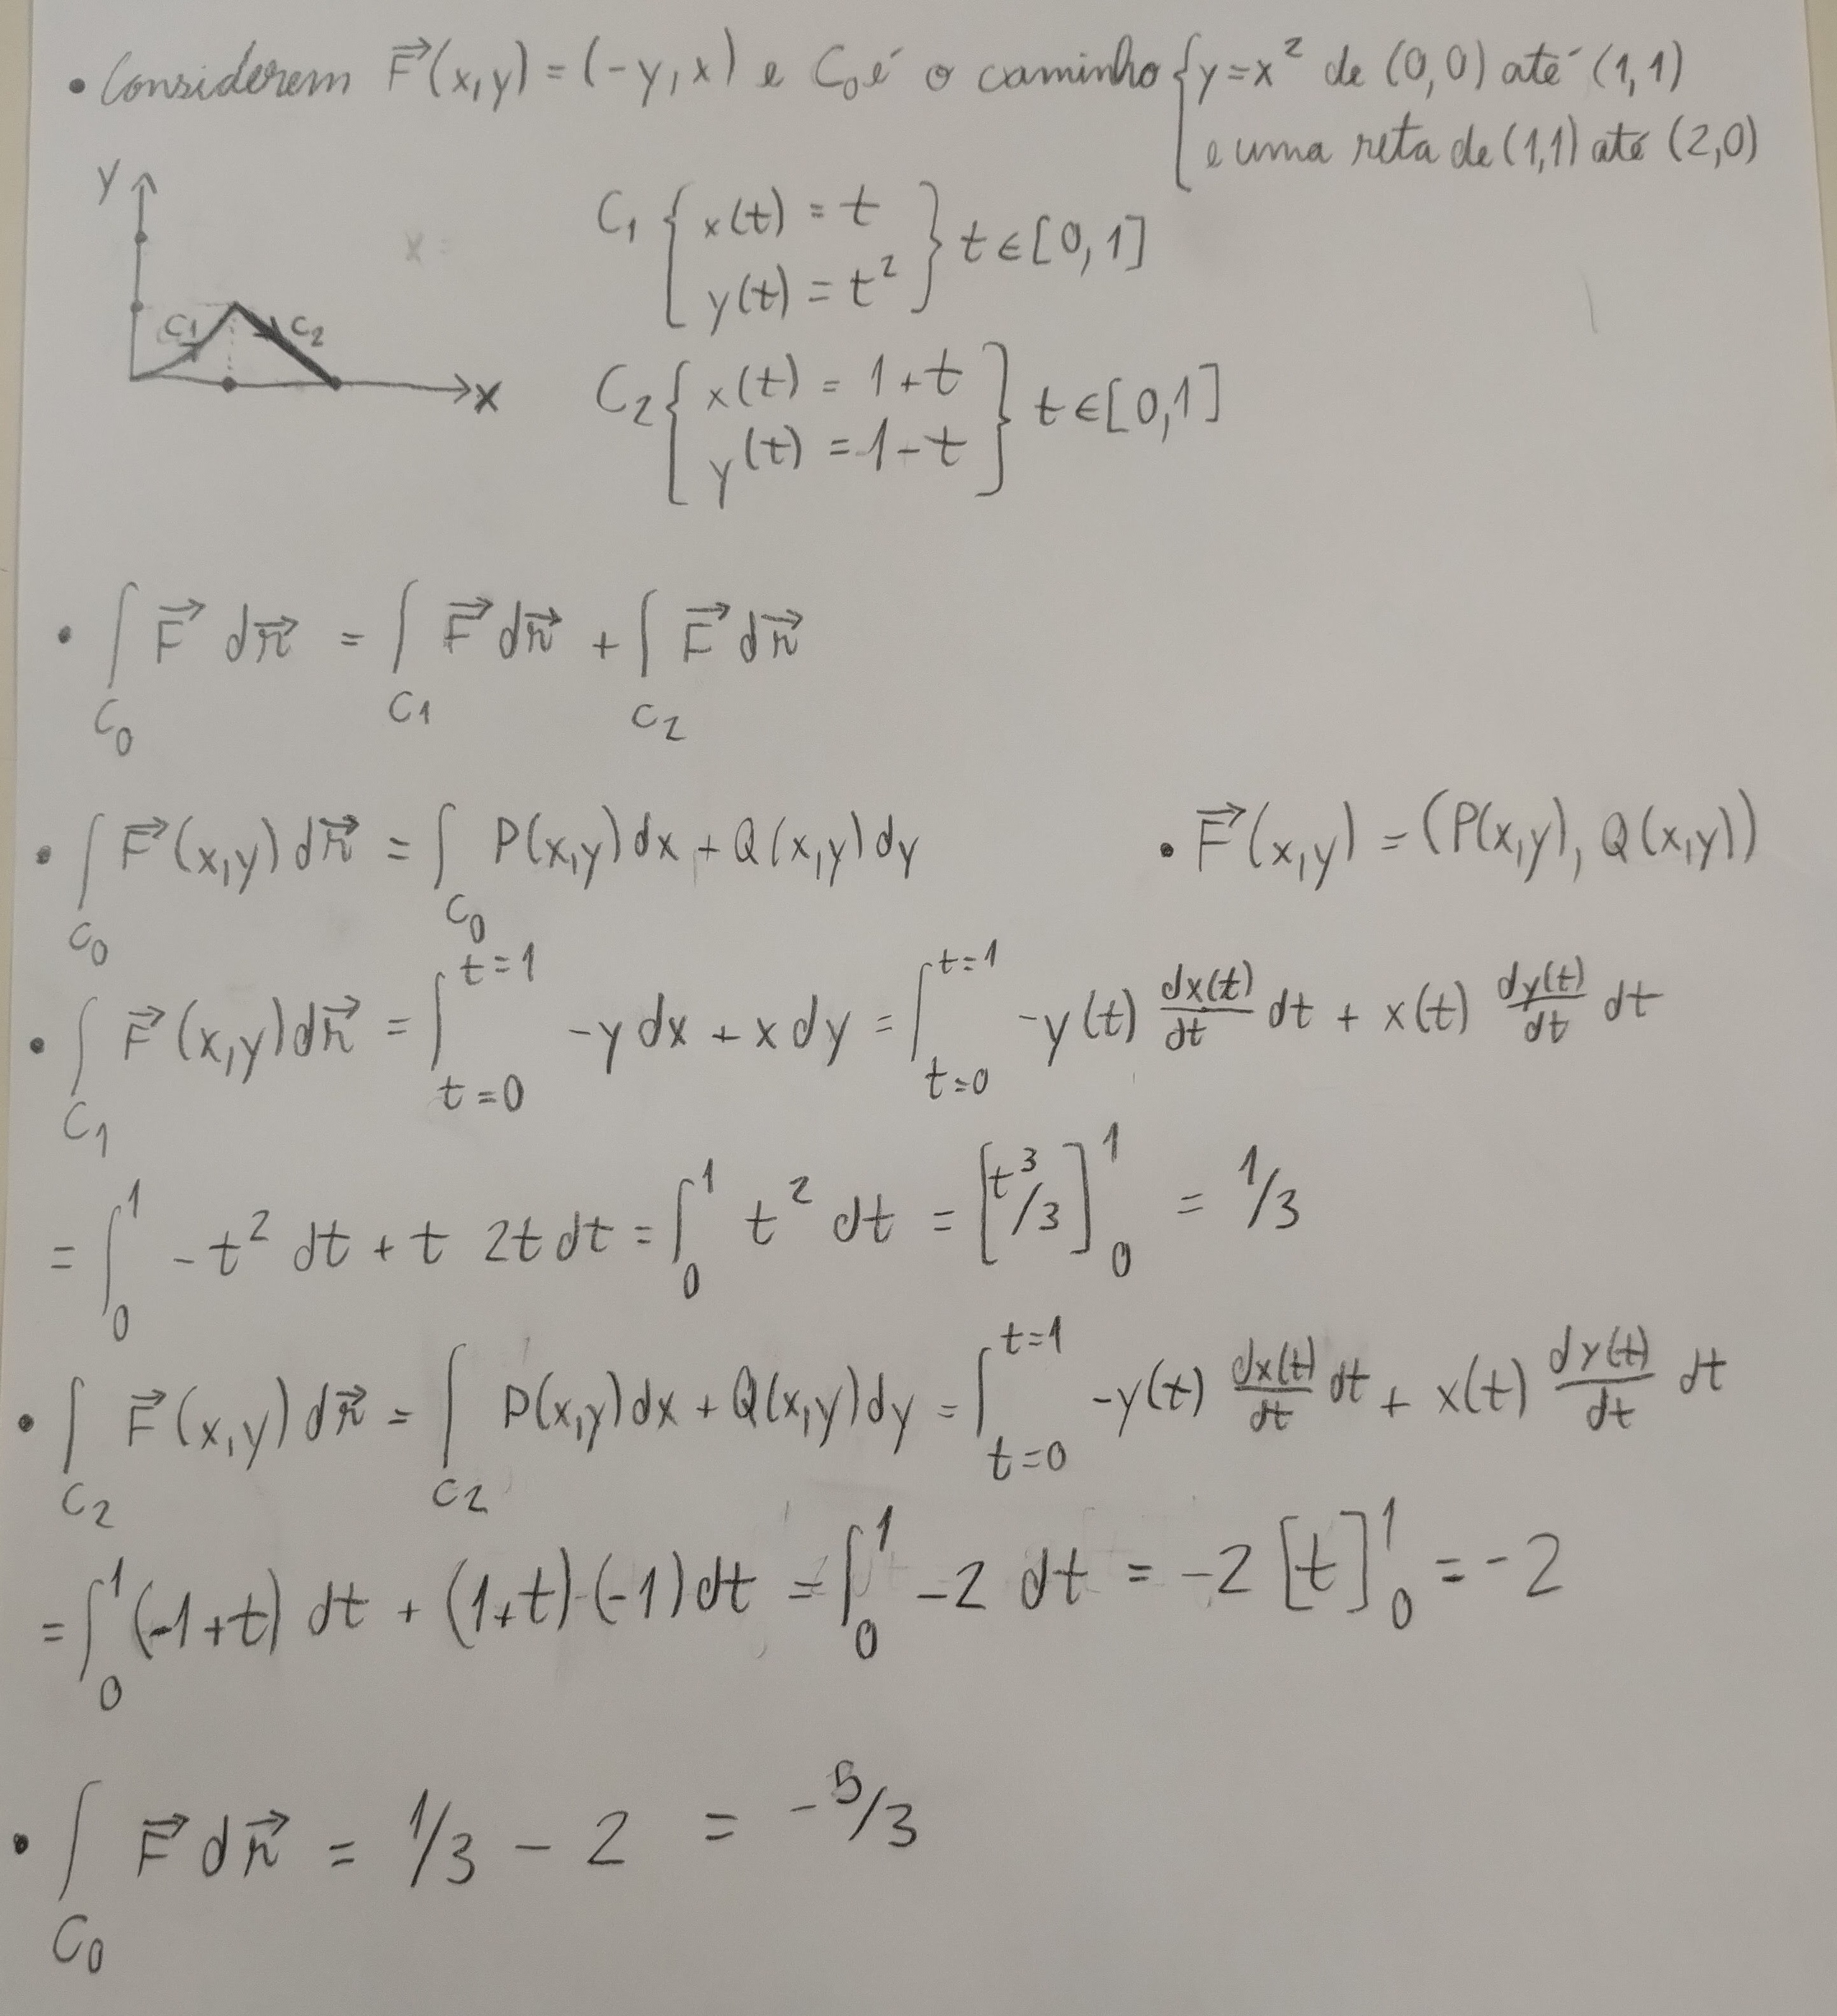 • Considerem F⃗(x,y) = (-y, x) e C₀ é o caminho { y = x² de (0,0) até (1,1)
e uma reta de (1,1) até (2,0)
y
C₁ { x(t) = t
y(t) = t² } t ∈ [0,1]
C₁ C₂
x
C₂ { x(t) = 1+t
y(t) = 1-t } t ∈ [0,1]
• ∫_C₀ F⃗ dr⃗ = ∫_C₁ F⃗ dr⃗ + ∫_C₂ F⃗ dr⃗
• ∫_C₀ F⃗(x,y) dr⃗ = ∫_C₀ P(x,y) dx + Q(x,y) dy • F⃗(x,y) = (P(x,y), Q(x,y))
• ∫_C₁ F⃗(x,y) dr⃗ = ∫_{t=0}^{t=1} -y dx + x dy = ∫_{t=0}^{t=1} -y(t) dx(t)/dt dt + x(t) dy(t)/dt dt
= ∫_0^1 -t² dt + t 2t dt = ∫_0^1 t² dt = [t³/3]_0^1 = 1/3
• ∫_C₂ F⃗(x,y) dr⃗ = ∫_C₂ P(x,y) dx + Q(x,y) dy = ∫_{t=0}^{t=1} -y(t) dx(t)/dt dt + x(t) dy(t)/dt dt
= ∫_0^1 (-1+t) dt + (1+t)·(-1) dt = ∫_0^1 -2 dt = -2 [t]_0^1 = -2
• ∫_C₀ F⃗ dr⃗ = 1/3 - 2 = -5/3